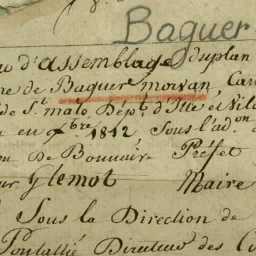 Baguer
u d'assemblage du plan
ne de Baguer morvan, Can
de St malo, Dépt d'Ille et Vil
u en 9bre 1812 Sous l'adon d
De Bonnair Préfet
ur Glemot Maire
Sous la Direction de
Pontallié Directeur des Co